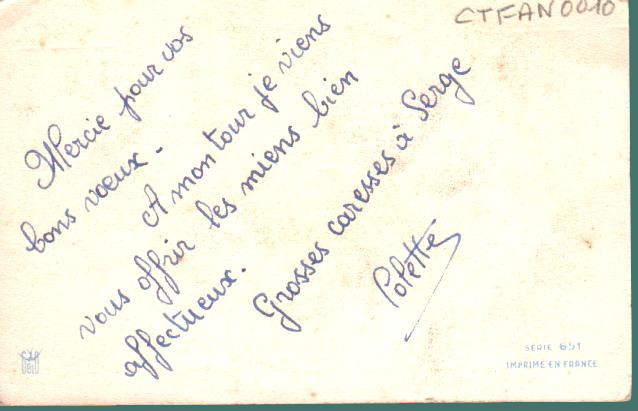 CTFAN0010
Mercie pour vos
bons vœux.
A mon tour je viens
vous offrir les miens bien
affectueux.
Grosses caresses à Serge
Colette
SERIE 651
IMPRIMÉ EN FRANCE